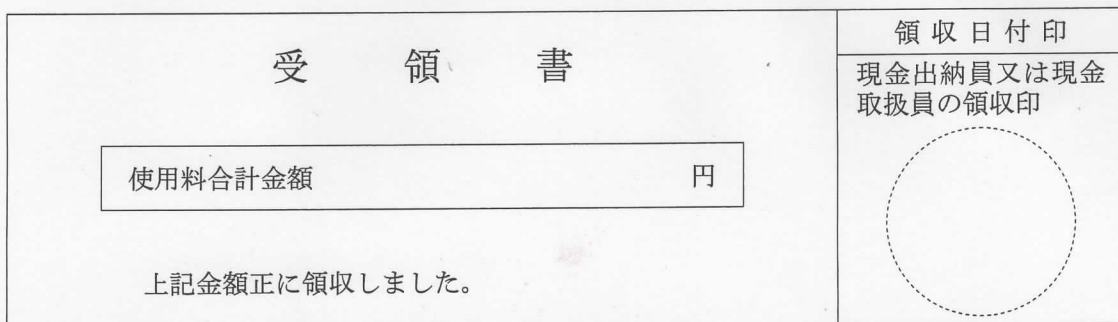 受領書
使用料合計金額 円
上記金額正に領収しました。
領収日付印
現金出納員又は現金
取扱員の領収印